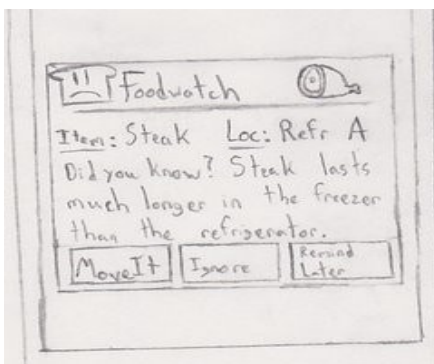 Foodwatch
Item: Steak Loc: Refr A
Did you know? Steak lasts
much longer in the freezer
than the refrigerator.
Move It Ignore Remind
Later